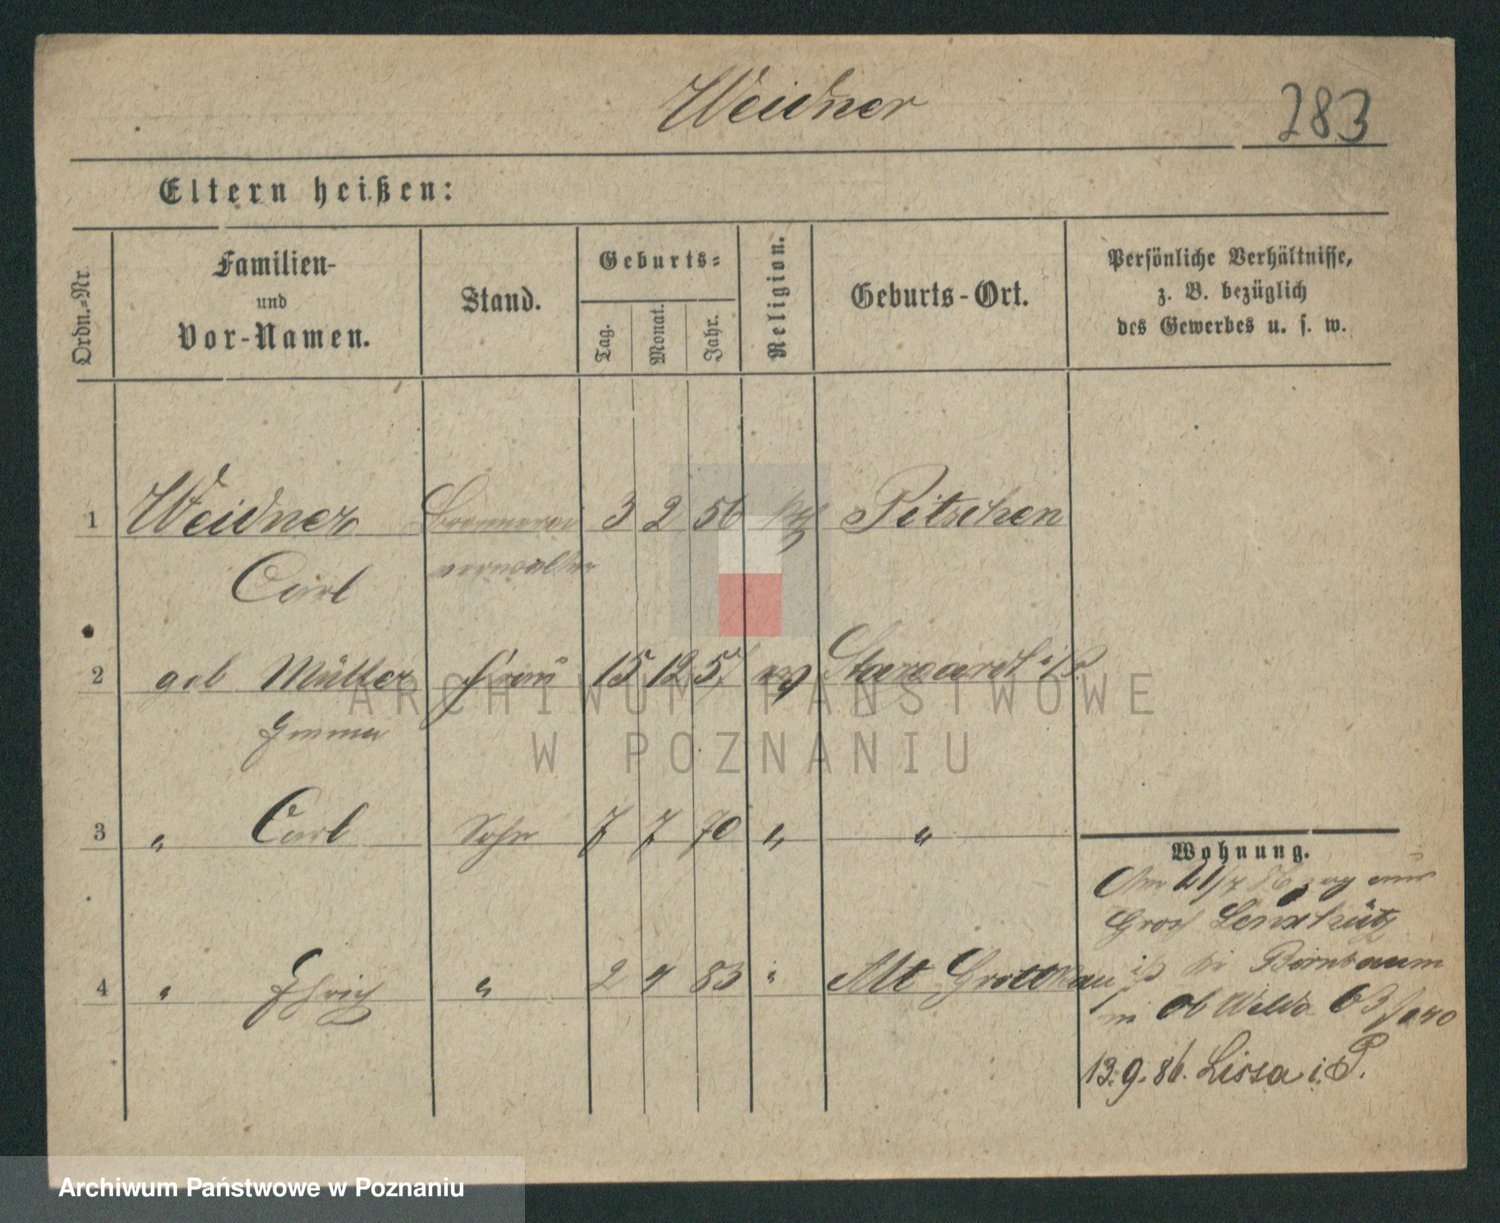 Weidner
283
Eltern heißen:
Ordn.-Nr.
Familien-
und
Vor-Namen.
Stand.
Geburts-
Tag.
Monat.
Jahr.
Religion.
Geburts-Ort.
Persönliche Verhältnisse,
z. B. bezüglich
des Gewerbes u. s. w.
1 Weidner 3 2 56 Pitschen
verwalter
Carl
2 geb Müller Frau 15 12 57 ev Stargardt i/P.
Emma
3 " Carl Sohn 7 7 70 " "
Wohnung.
Am 21/7 86 zog nur
Gros
4 " " 2 4 83 " Alt Grottkau
bei Birnbaum
in Ob Wilda 63
13.9.86. Lissa i. P.
ARCHIWUM PAŃSTWOWE
W POZNANIU
Archiwum Państwowe w Poznaniu